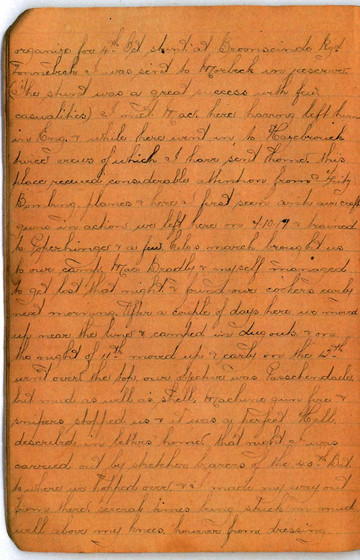 organize for 4th Oct stunt at Broonseinde Rdg
Zonnebeke & I was sent to Morbeck in reserve
(The stunt was a great success with few
casualities) I met Mac. here having left him
in Eng. & while here went in to Hazebrouck
twice views of which I have sent home, this
place received considerable attention from Fritz
Bombing planes & here I first seen anti aircraft
guns in action we left here on 9/10/17 & trained
to & a few kilo's march brought us
to our camp, Mac Bradly & myself managed
to get lost that night & found our cobbers early
next morning. After a couple of days here we moved
up near the line & camped in dugouts & on
the night of 11th moved up & early on the 12th
went over the top, our objective was Passchendaele
but mud as well as Shell, Machine gun fire &
snipers stopped us & it was a perfect Hell
described in letters home, that night I was
carried out by stretcher bearers of the Bat.
to where we hopped over & I made my way out
from here, several times being stuck in mud
well above my knees, however from dressing